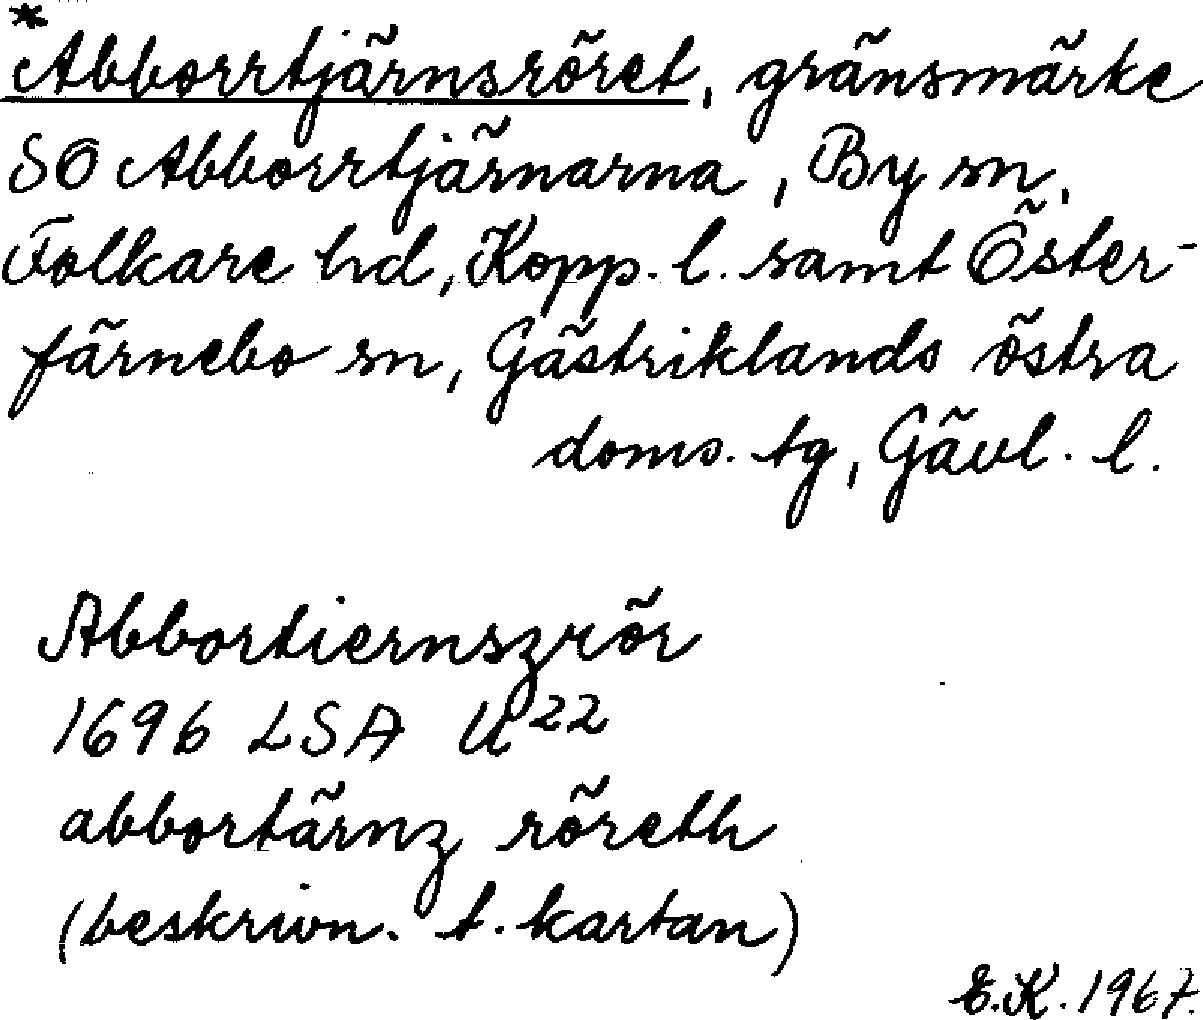 *Abborrtjärnsröret, gränsmärke
SO Abborrtjärnarna, By sn,
Folkare hd, Kopp. l. samt Öster-
färnebo sn, Gästriklands östra
doms. tg, Gävl. l.
Abbortiernszrör
1696 LSA U22
abbortärnz röreth
(beskrivn. t. kartan)
E.K. 1967.